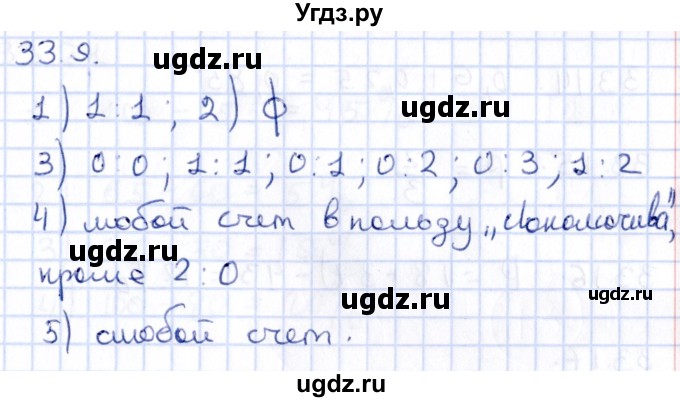 Угдз.ру
33.9.
ugdz.ru
ugdz.ru
1) 1:1 ; 2) ф
3) 0:0 ; 1:1 ; 0:1 ; 0:2 ; 0:3 ; 1:2
4) любой счет в пользу „Локомотива",
ugdz.ru
ugdz.ru
кроме 2:0
ugdz.ru
ugdz.ru
5) слюбой счет.
ugdz.ru
ugdz.ru